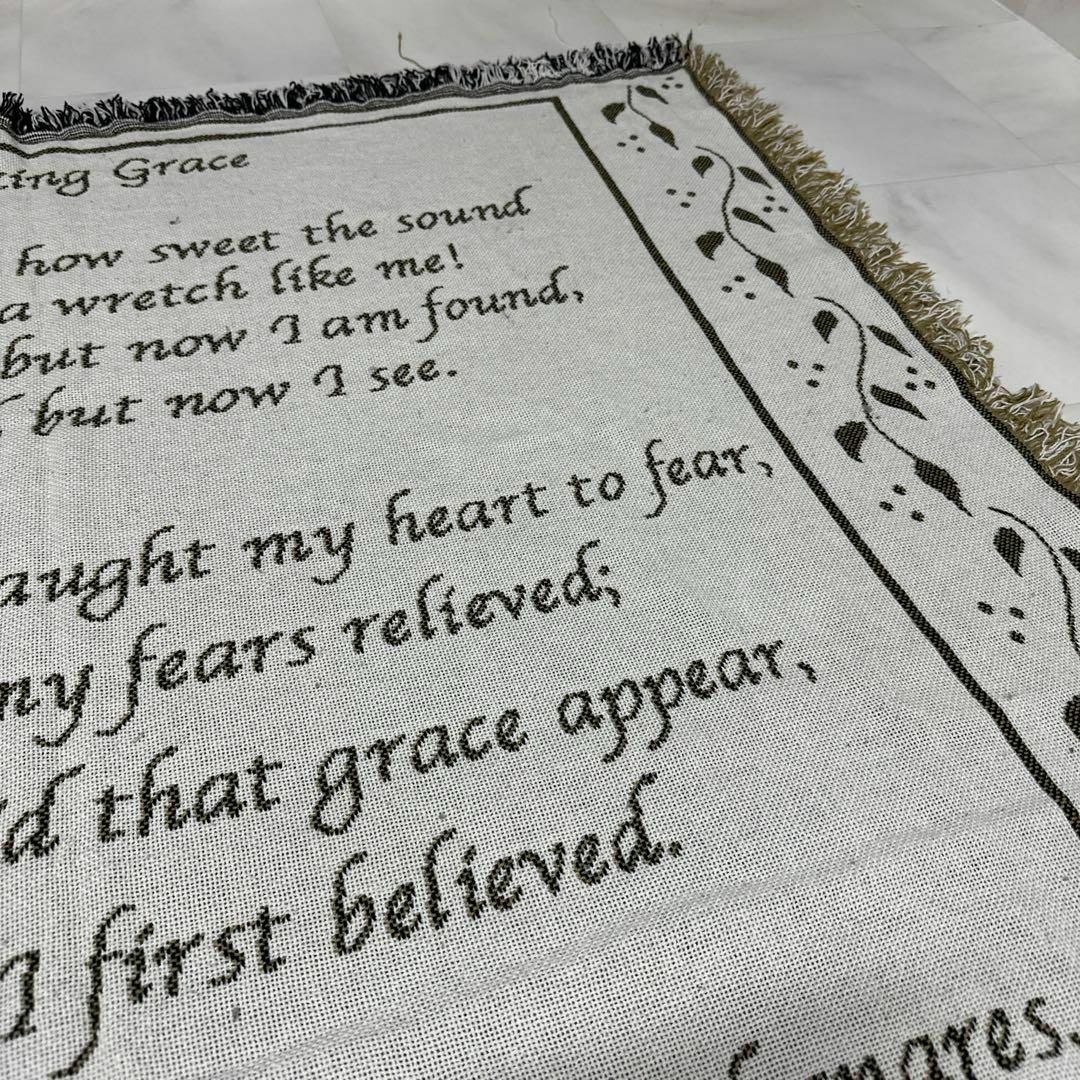 ting Grace
how sweet the sound
a wretch like me!
but now I am found,
but now I see.
aught my heart to fear,
my fears relieved;
d that grace appear,
I first believed.
snares.